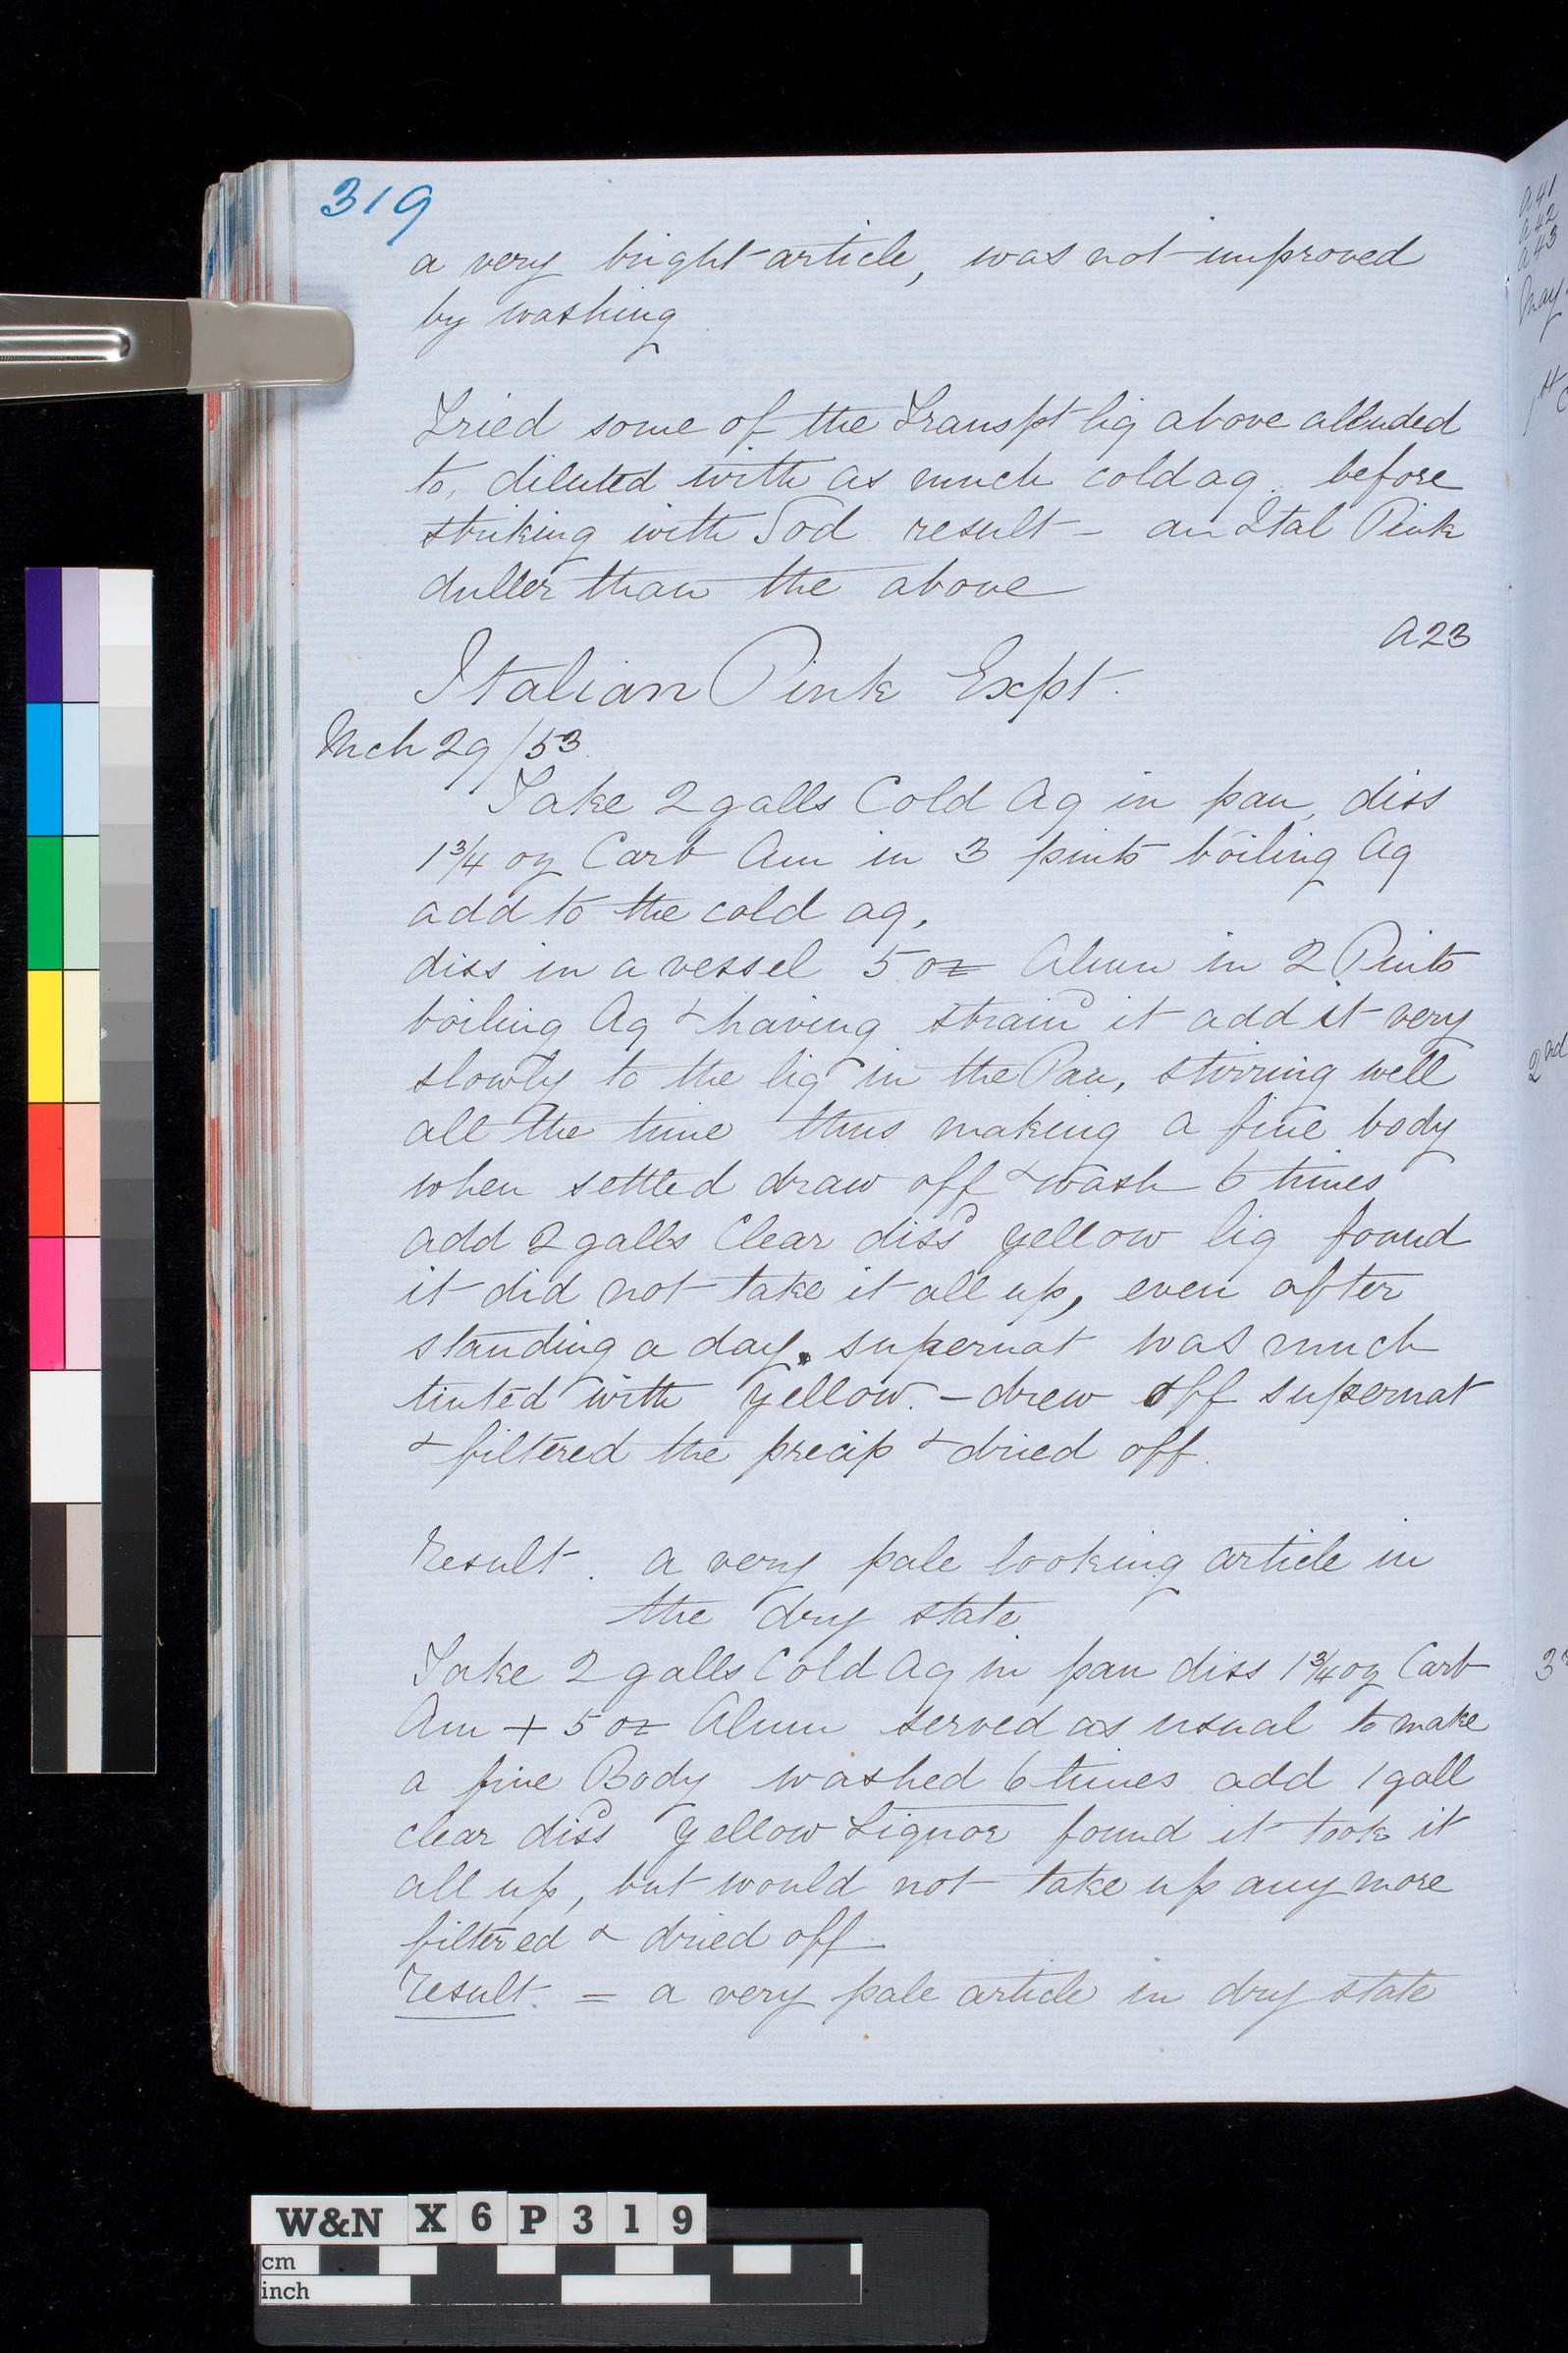 319
a very bright article, was not improved
by washing
Tried some of the Transpt liq above alluded
to, diluted with as much cold aq. before
striking with Sod result - an Ital Pink
duller than the above
A23
Italian Pink Expt.
Mch 29/53.
Take 2 galls Cold Aq in pan, diss
1¾ oz Carb Am in 3 pints boiling Aq
add to the cold aq,
diss in a vessel 5 oz Alum in 2 Pints
boiling Aq & having straind it add it very
slowly to the liq in the Pan, stirring well
all the time thus making a fine body
when settled draw off & wash 6 times
add 2 galls Clear dissd yellow liq found
it did not take it all up, even after
standing a day. supernat was much
tinted with yellow. - drew off supernat
& filtered the precip & dried off.
Result. a very pale looking article in
the dry state
Take 2 galls Cold Aq in pan diss 1¾ oz Carb
Am + 5 oz Alum served as usual to make
a fine Body washed 6 times add 1 gall
clear dissd yellow Liquor found it took it
all up, but would not take up any more
filtered & dried off
Result. = a very pale article in dry state
A41
A42
A43
May
1st
2nd
W&N X6P319
cm
inch